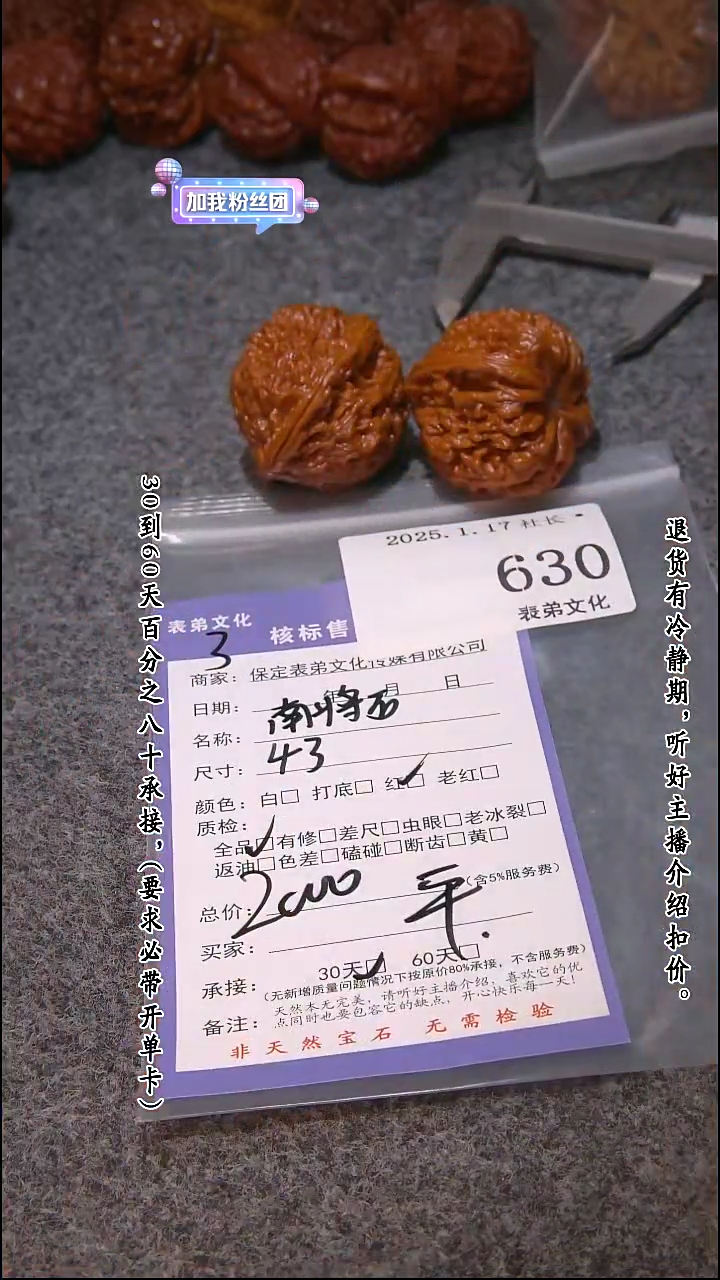 加我粉丝团
30到60天百分之八十承接,(要求必带开单卡)
退货有冷静期,听好主播介绍扣价。
2025.1.17 社长
630
表弟文化
表弟文化
3
核标售
商家: 保定表弟文化传媒有限公司
日期: 年 月 日
名称: 南将石
尺寸: 43
颜色: 白□ 打底□ 红□✓ 老红□
质检:
全品□✓ 有修□ 差尺□ 虫眼□ 老冰裂□
返油□ 色差□ 磕碰□ 断齿□ 黄□
总价: 2000 平. (含5%服务费)
买家:
承接: 30天□✓ 60天□
(无新增质量问题情况下按原价80%承接,不含服务费)
备注: 天然本无完美,请听好主播介绍,喜欢它的优
点同时也要包容它的缺点,开心快乐每一天!
非天然宝石 无需检验